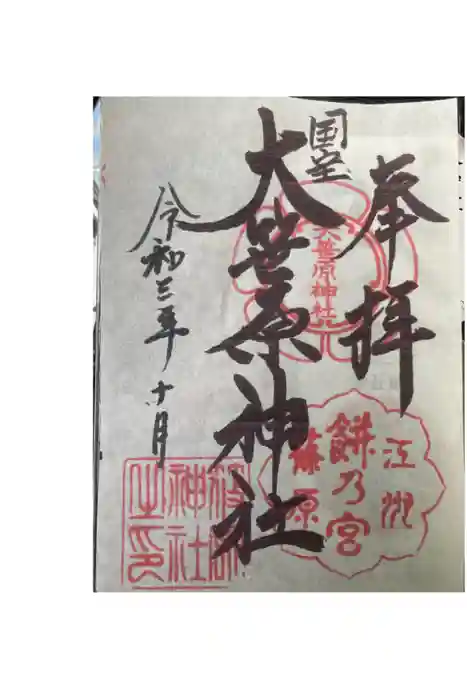 奉拝
国宝
大笹原神社
令和三年十月
大笹原神社
江州
餅乃宮
原
神社
之印